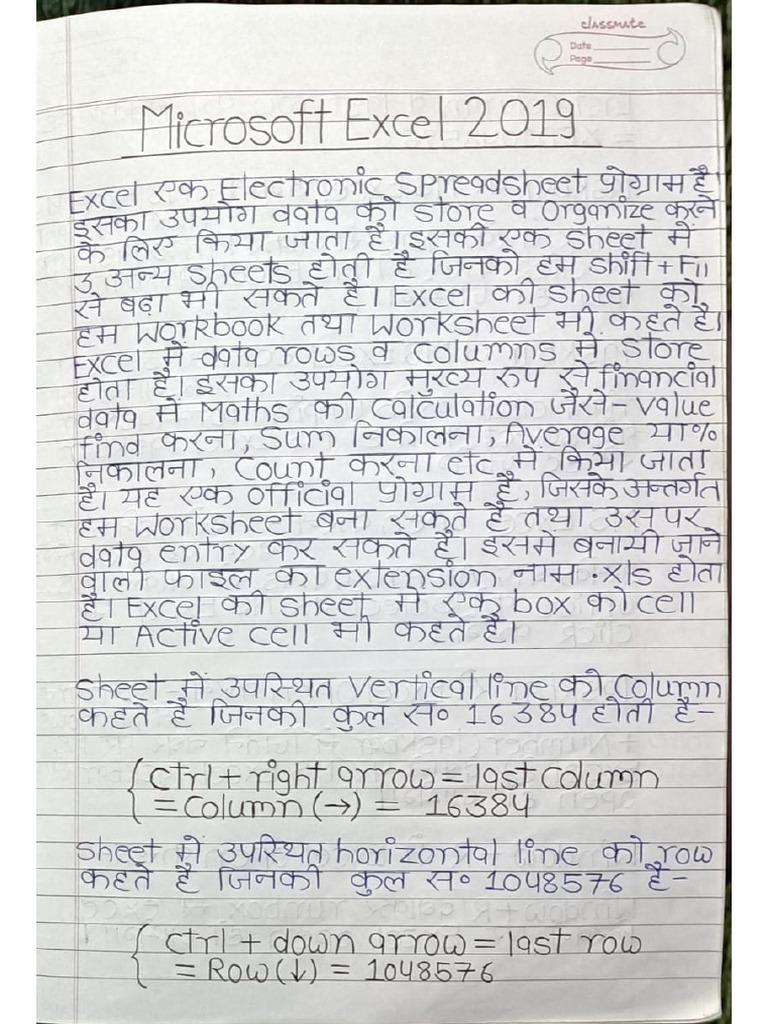 classmate
Date
Page
Microsoft Excel 2019
Excel एक Electronic Spreadsheet प्रोग्राम है।
इसका उपयोग data को store व organize करने
के लिए किया जाता है। इसकी एक sheet में
3 अन्य sheets होती है जिनको हम shift + F11
से बढ़ा भी सकते है। Excel की sheet को
हम Workbook तथा Worksheet भी कहते है।
Excel में data rows व columns में store
होता है। इसका उपयोग मुख्य रुप से financial
data में Maths की calculation जैसे - value
find करना, Sum निकालना, Average या %
निकालना, Count करना etc में किया जाता
है। यह एक official प्रोग्राम है, जिसके अन्तर्गत
हम Worksheet बना सकते है तथा उस पर
data entry कर सकते है। इसमें बनायी जाने
वाले फाइल का extension नाम .xls होता
है। Excel की sheet में एक box को cell
या Active cell भी कहते है।
Sheet में उपस्थित Vertical line को Column
कहते है जिनकी कुल स० 16384 होती है-
{ ctrl + right arrow = last column
= Column (→) = 16384
Sheet में उपस्थित horizontal line को row
कहते है जिनकी कुल स० 1048576 है-
{ ctrl + down arrow = last row
= Row (↓) = 1048576